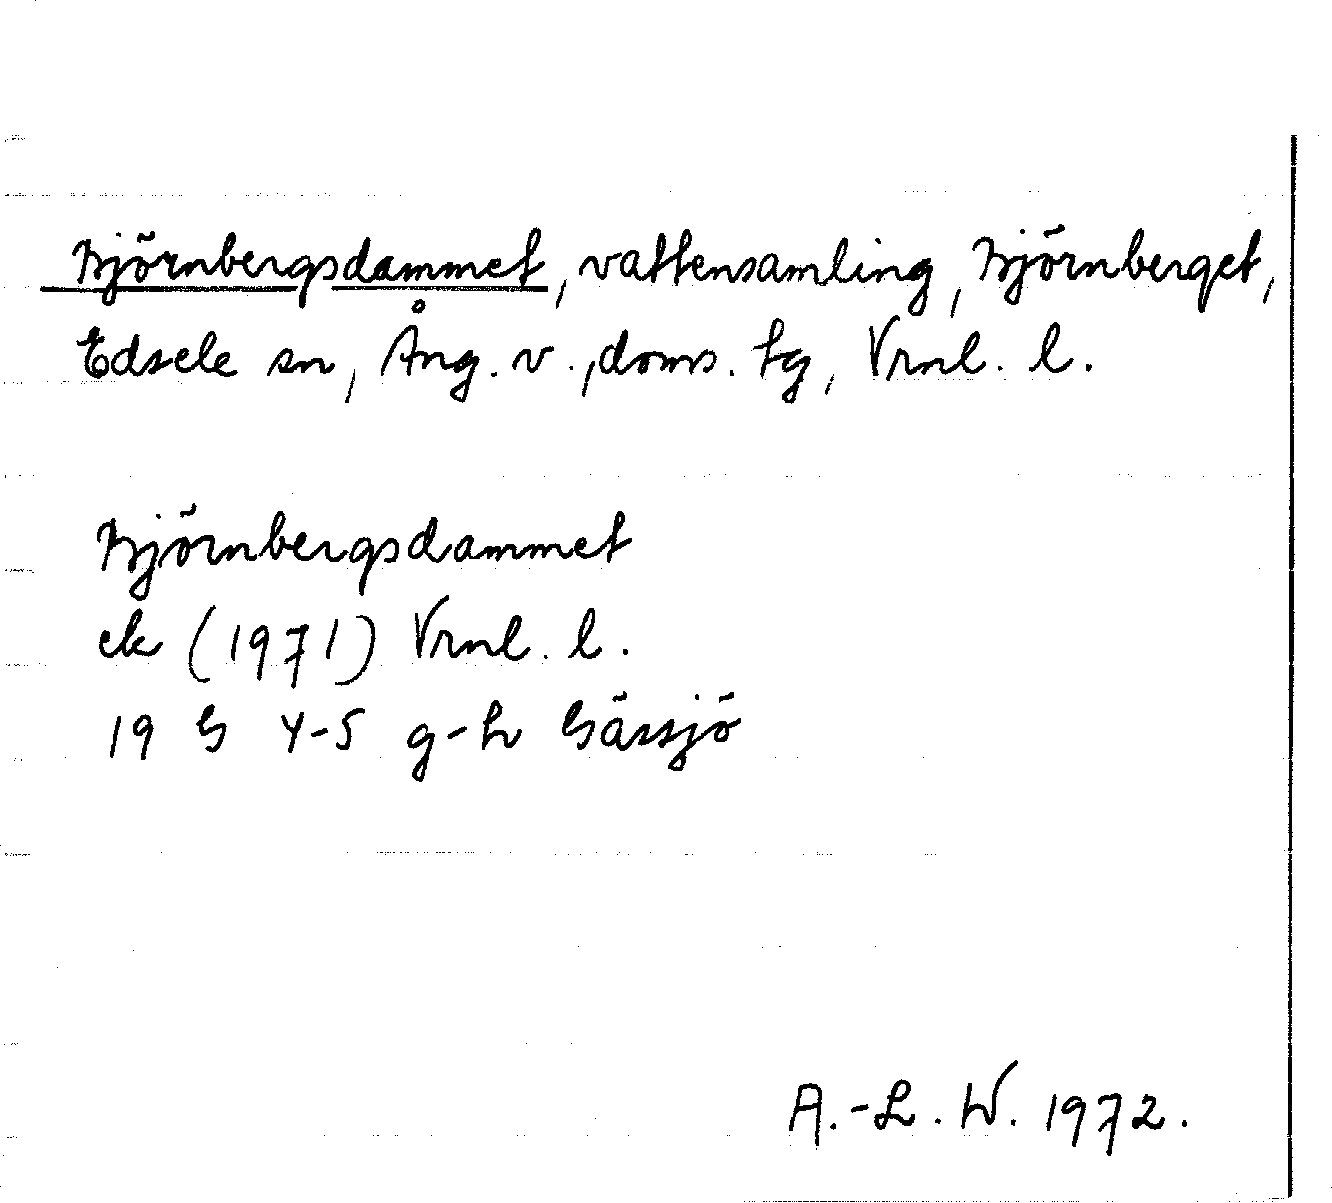 Björnbergsdammet, vattensamling, Björnberget,
Edsele sn, Ång. v., doms. tg, Vrnl. l.
Björnbergsdammet
ek (1971) Vrnl. l.
19 G 4-5 g-h Gässjö
A.-L. W. 1972.